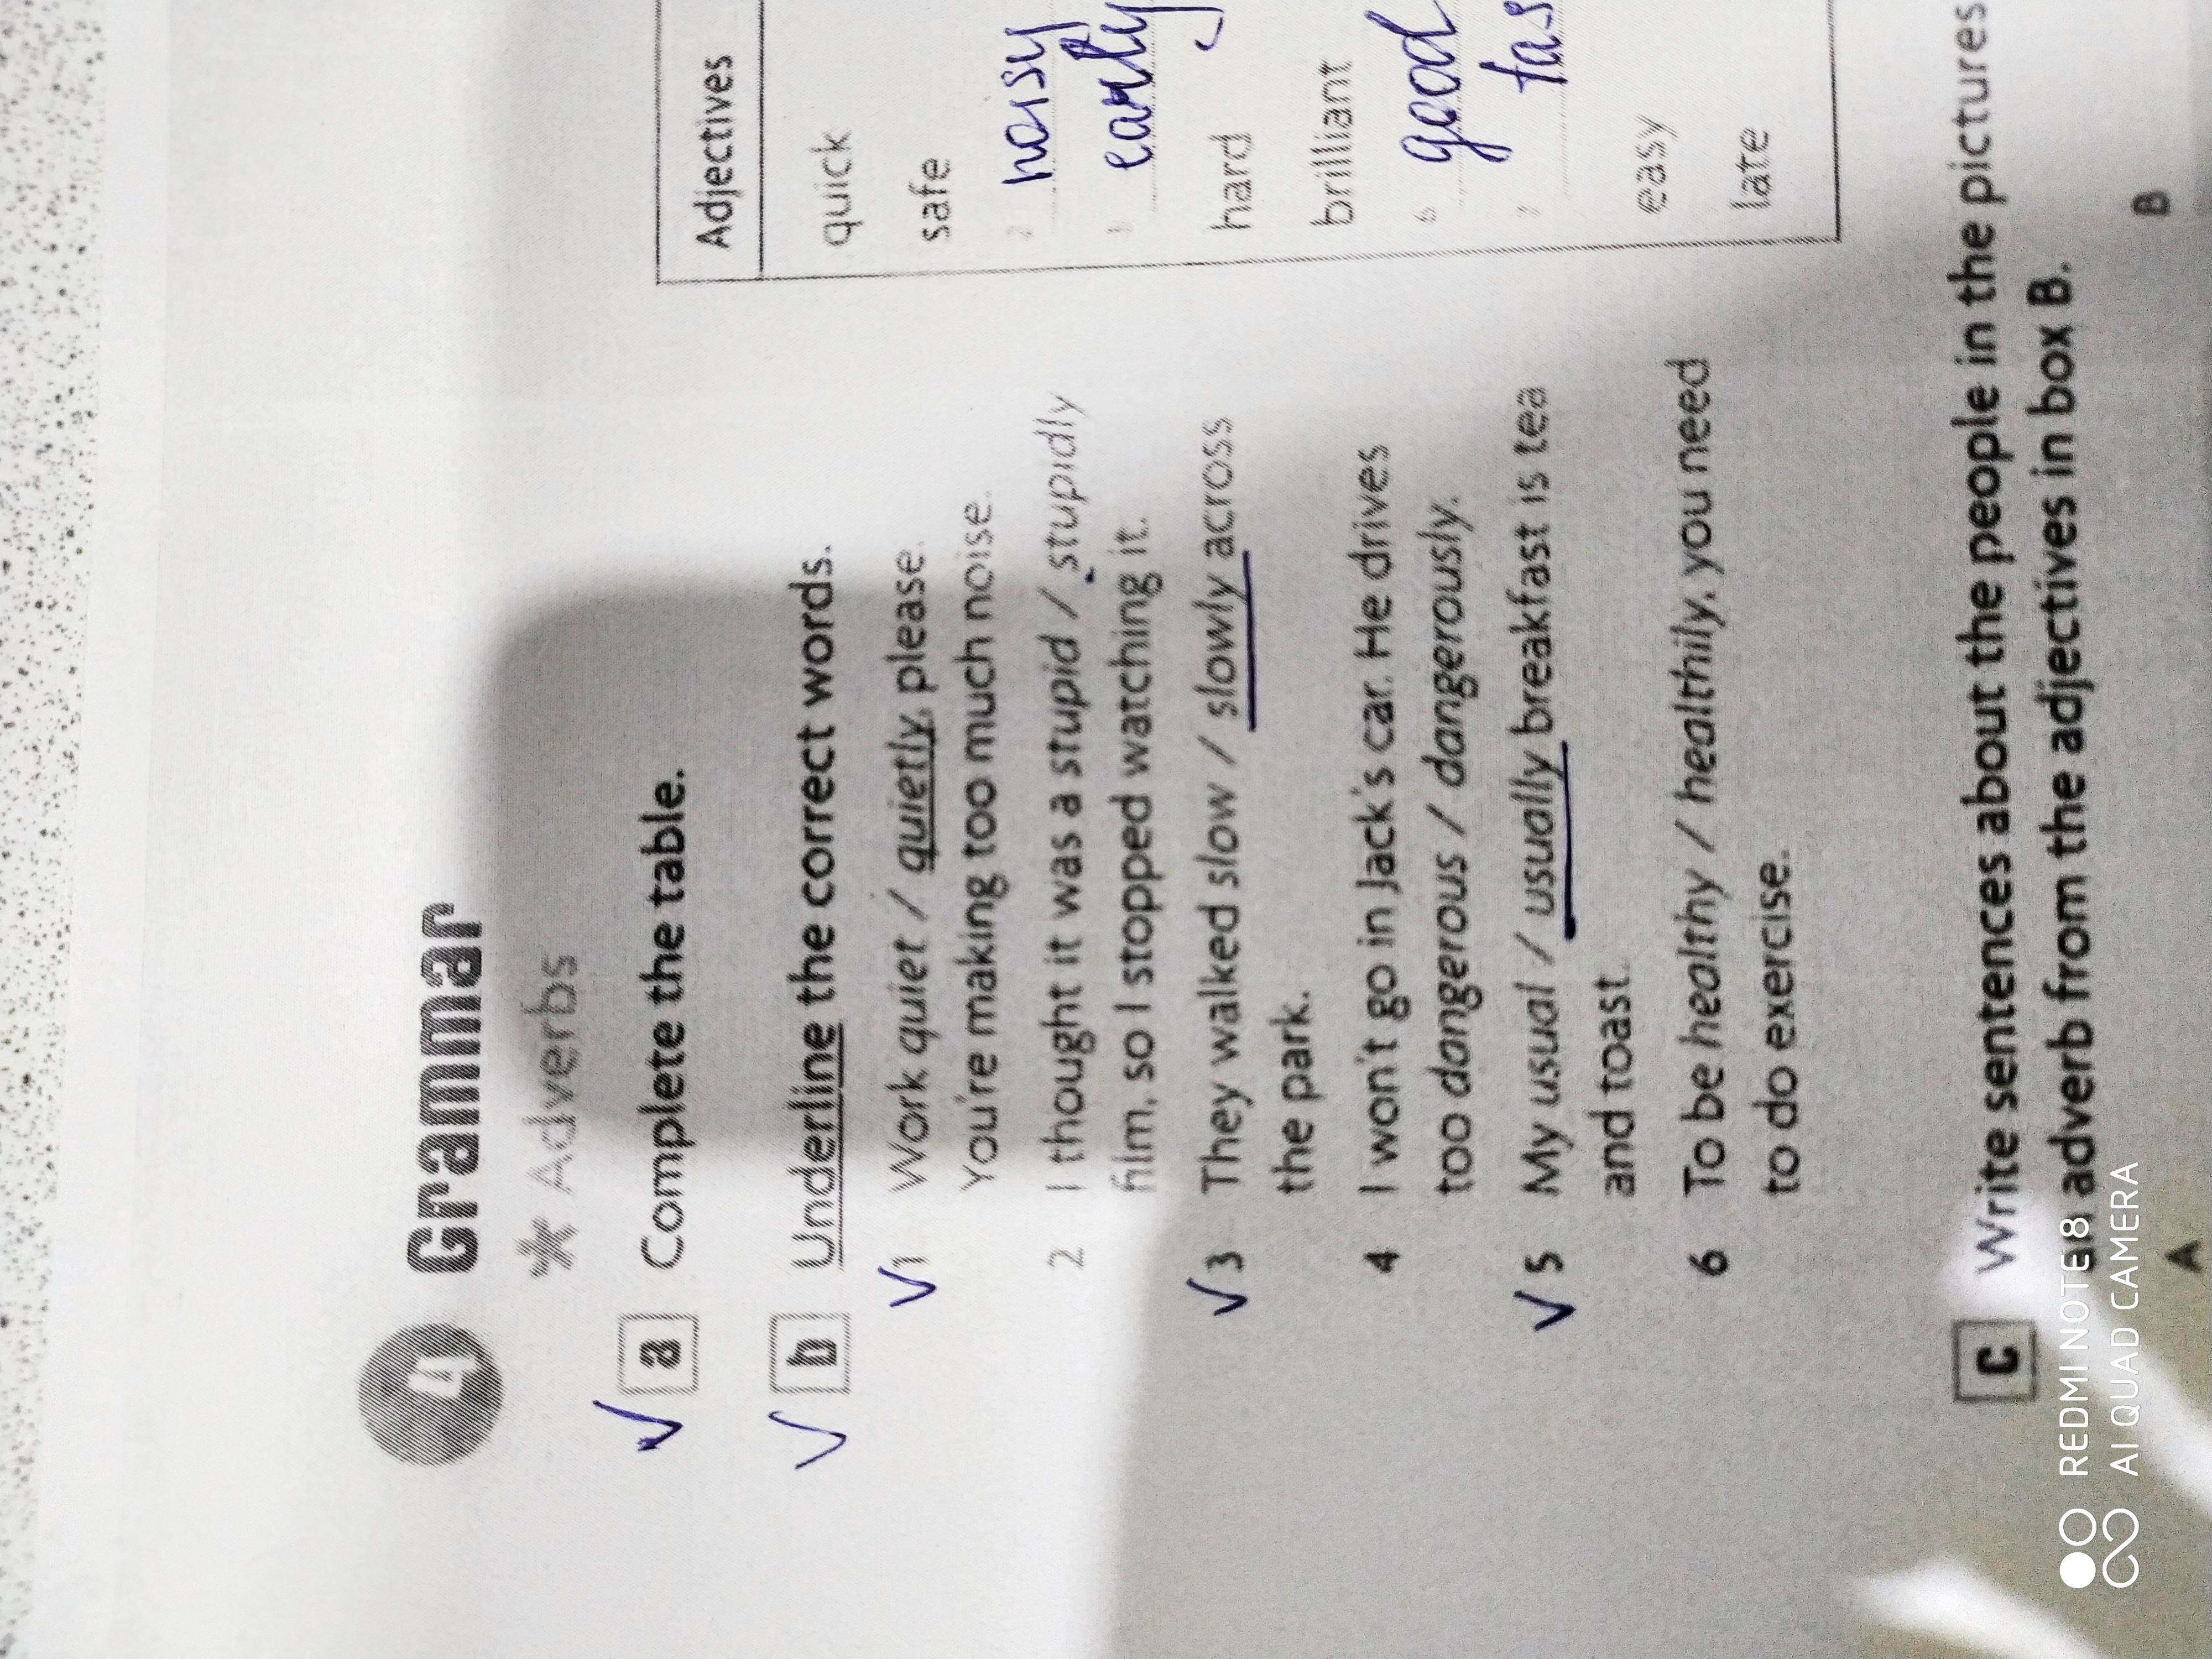 4 Grammar
* Adverbs
a Complete the table.
b Underline the correct words.
1 Work quiet / quietly, please.
You're making too much noise.
2 I thought it was a stupid / stupidly
film, so I stopped watching it.
3 They walked slow / slowly across
the park.
4 I won't go in Jack's car. He drives
too dangerous / dangerously.
5 My usual / usually breakfast is tea
and toast.
6 To be healthy / healthily, you need
to do exercise.
Adjectives
quick
safe
2 noisy
3 early
hard
brilliant
6 good
7
easy
late
C Write sentences about the people in the pictures
an adverb from the adjectives in box B.
A
B
REDMI NOTE 8
AI QUAD CAMERA